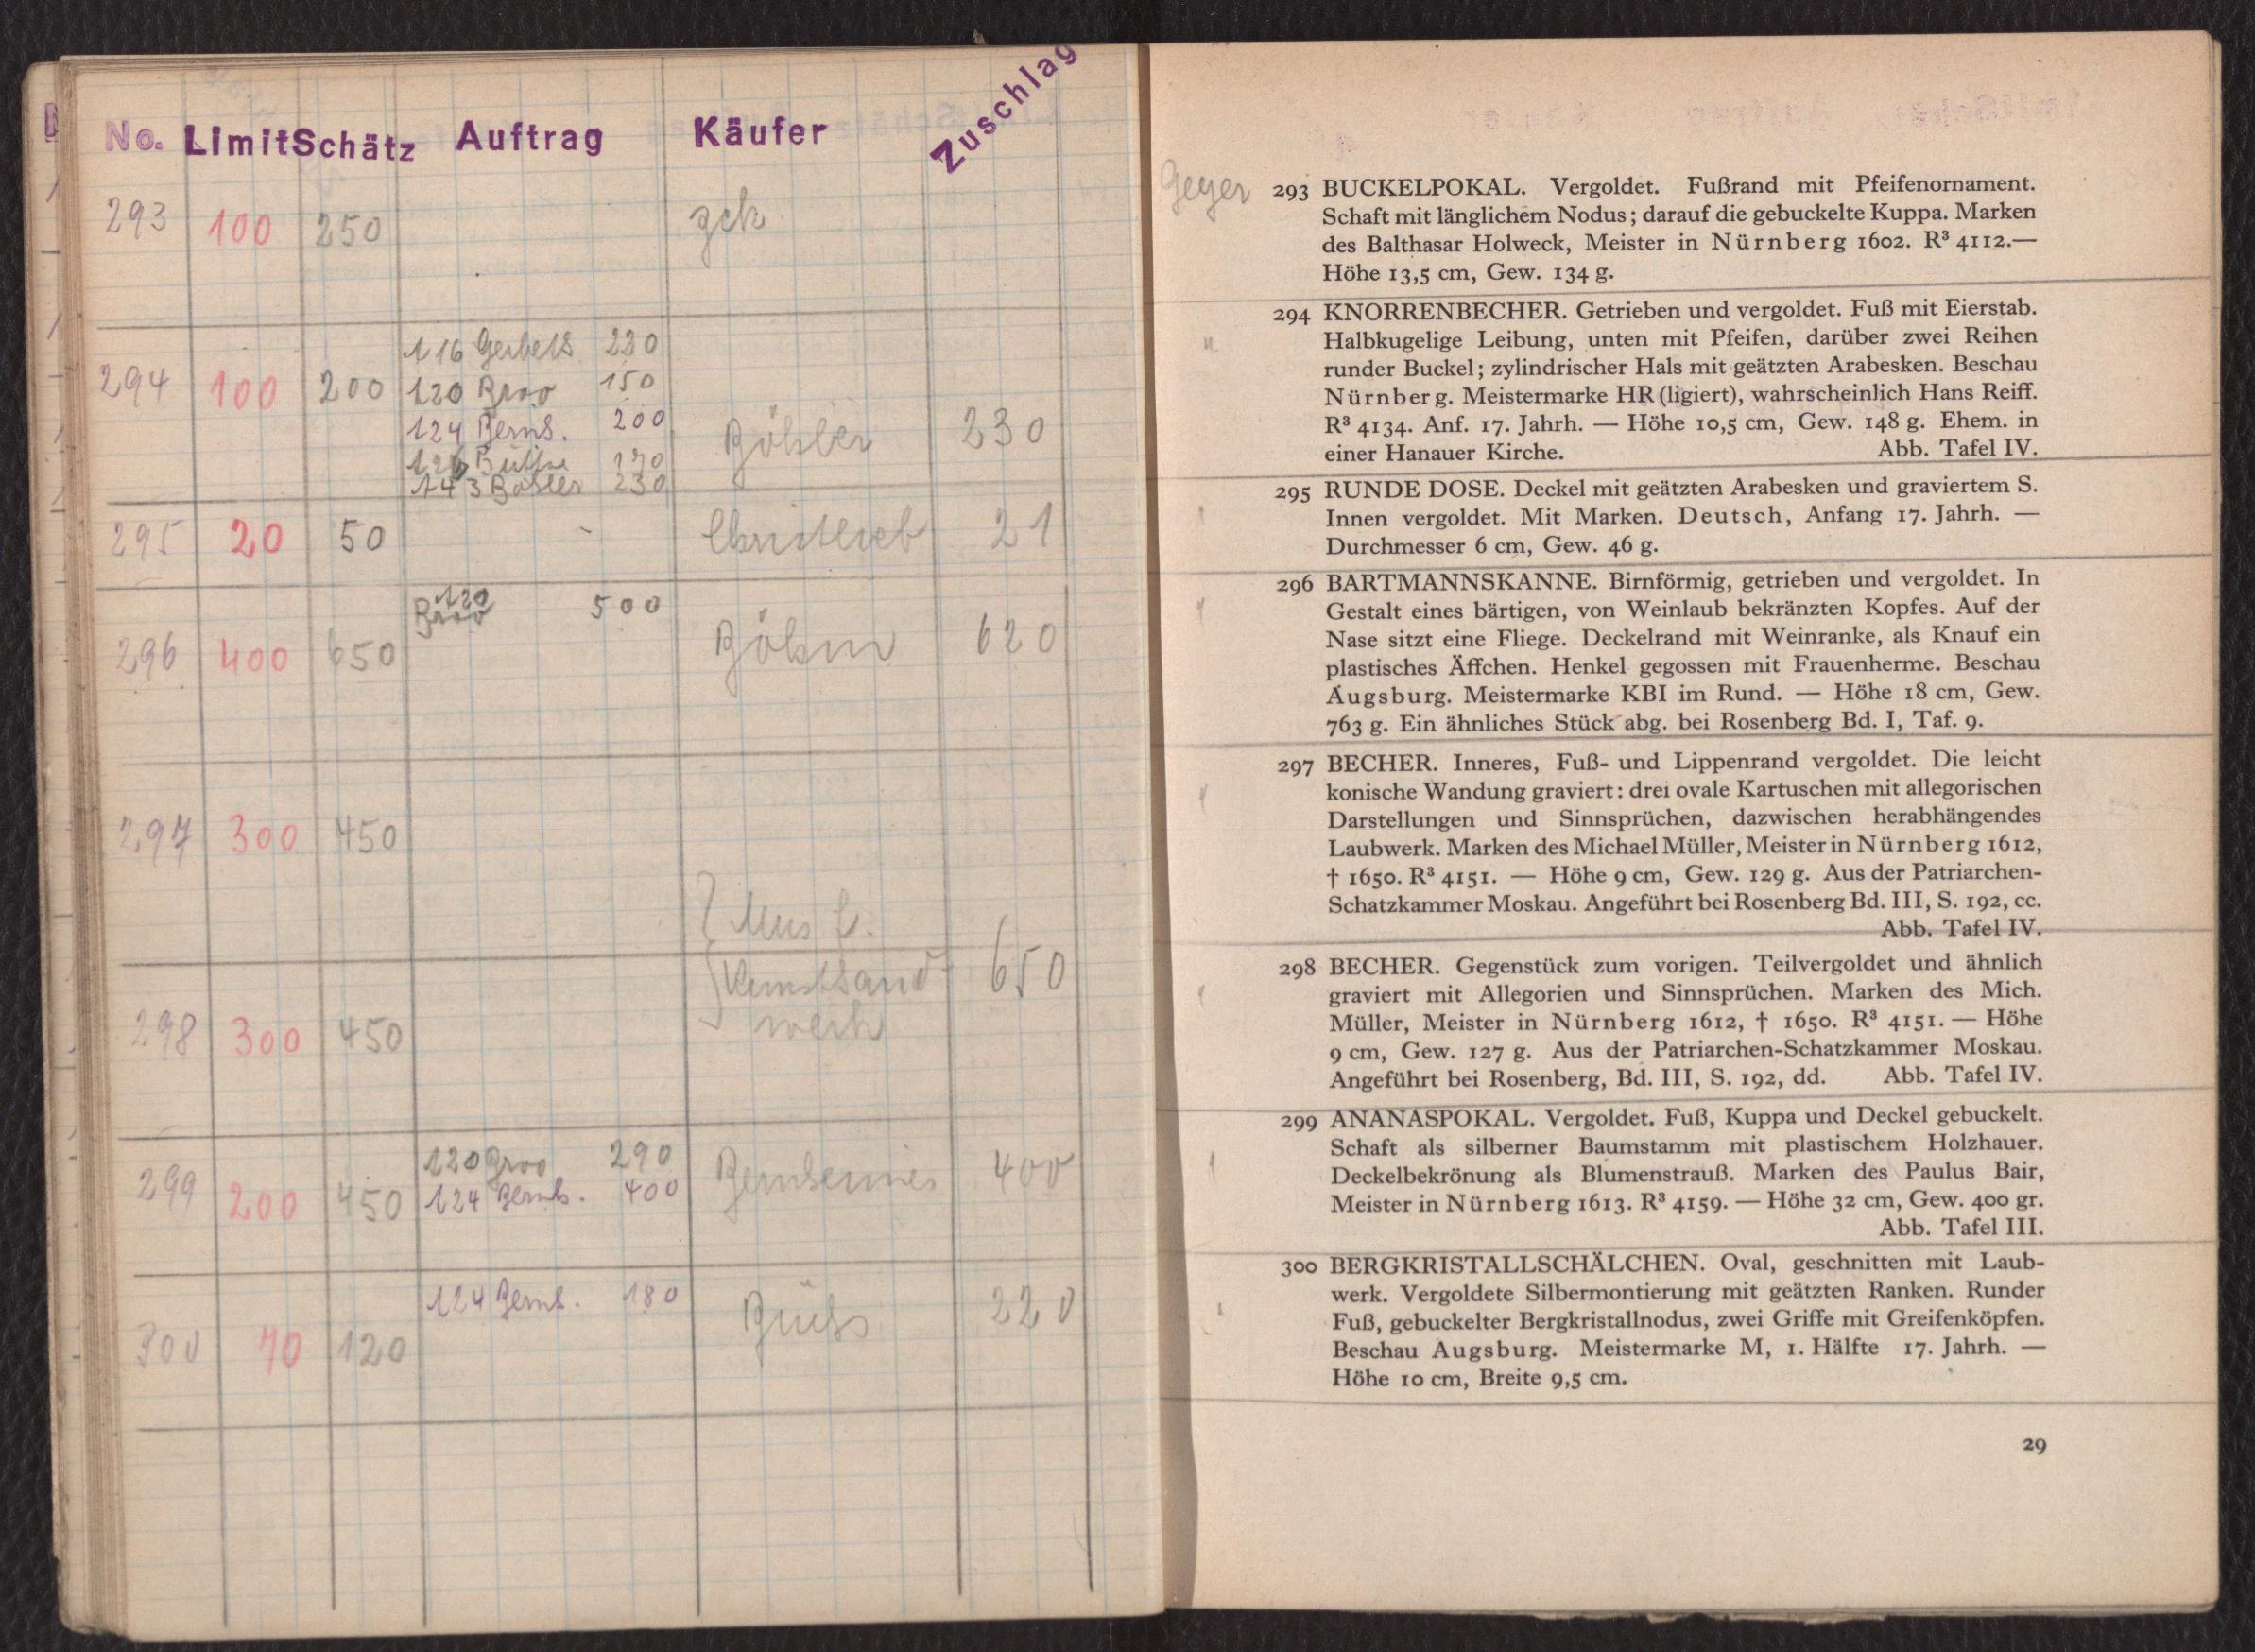 No. Limit Schätz Auftrag Käufer Zuschlag
293 100 250 zck
116 230
294 100 200 120 Broo 150
124 Berns. 200
Böhler 230
170
143 Böhler 230
295 20 50 - Christlieb 21
120
Broo 500
296 400 650 Böhm 620
297 300 450
Mus f.
Kunsthand 650
werk
298 300 450
120 Broo 290
299 200 450 124 Berns. 400 Bernheimer 400
124 Berns. 180
300 70 120 220
Geyer
293 BUCKELPOKAL. Vergoldet. Fußrand mit Pfeifenornament.
Schaft mit länglichem Nodus; darauf die gebuckelte Kuppa. Marken
des Balthasar Holweck, Meister in Nürnberg 1602. R³ 4112.—
Höhe 13,5 cm, Gew. 134 g.
294 KNORRENBECHER. Getrieben und vergoldet. Fuß mit Eierstab.
Halbkugelige Leibung, unten mit Pfeifen, darüber zwei Reihen
runder Buckel; zylindrischer Hals mit geätzten Arabesken. Beschau
Nürnberg. Meistermarke HR (ligiert), wahrscheinlich Hans Reiff.
R³ 4134. Anf. 17. Jahrh. — Höhe 10,5 cm, Gew. 148 g. Ehem. in
einer Hanauer Kirche. Abb. Tafel IV.
295 RUNDE DOSE. Deckel mit geätzten Arabesken und graviertem S.
Innen vergoldet. Mit Marken. Deutsch, Anfang 17. Jahrh. —
Durchmesser 6 cm, Gew. 46 g.
296 BARTMANNSKANNE. Birnförmig, getrieben und vergoldet. In
Gestalt eines bärtigen, von Weinlaub bekränzten Kopfes. Auf der
Nase sitzt eine Fliege. Deckelrand mit Weinranke, als Knauf ein
plastisches Äffchen. Henkel gegossen mit Frauenherme. Beschau
Augsburg. Meistermarke KBI im Rund. — Höhe 18 cm, Gew.
763 g. Ein ähnliches Stück abg. bei Rosenberg Bd. I, Taf. 9.
297 BECHER. Inneres, Fuß- und Lippenrand vergoldet. Die leicht
konische Wandung graviert: drei ovale Kartuschen mit allegorischen
Darstellungen und Sinnsprüchen, dazwischen herabhängendes
Laubwerk. Marken des Michael Müller, Meister in Nürnberg 1612,
† 1650. R³ 4151. — Höhe 9 cm, Gew. 129 g. Aus der Patriarchen-
Schatzkammer Moskau. Angeführt bei Rosenberg Bd. III, S. 192, cc.
Abb. Tafel IV.
298 BECHER. Gegenstück zum vorigen. Teilvergoldet und ähnlich
graviert mit Allegorien und Sinnsprüchen. Marken des Mich.
Müller, Meister in Nürnberg 1612, † 1650. R³ 4151. — Höhe
9 cm, Gew. 127 g. Aus der Patriarchen-Schatzkammer Moskau.
Angeführt bei Rosenberg, Bd. III, S. 192, dd. Abb. Tafel IV.
299 ANANASPOKAL. Vergoldet. Fuß, Kuppa und Deckel gebuckelt.
Schaft als silberner Baumstamm mit plastischem Holzhauer.
Deckelbekrönung als Blumenstrauß. Marken des Paulus Bair,
Meister in Nürnberg 1613. R³ 4159. — Höhe 32 cm, Gew. 400 gr.
Abb. Tafel III.
300 BERGKRISTALLSCHÄLCHEN. Oval, geschnitten mit Laub-
werk. Vergoldete Silbermontierung mit geätzten Ranken. Runder
Fuß, gebuckelter Bergkristallnodus, zwei Griffe mit Greifenköpfen.
Beschau Augsburg. Meistermarke M, 1. Hälfte 17. Jahrh. —
Höhe 10 cm, Breite 9,5 cm.
29